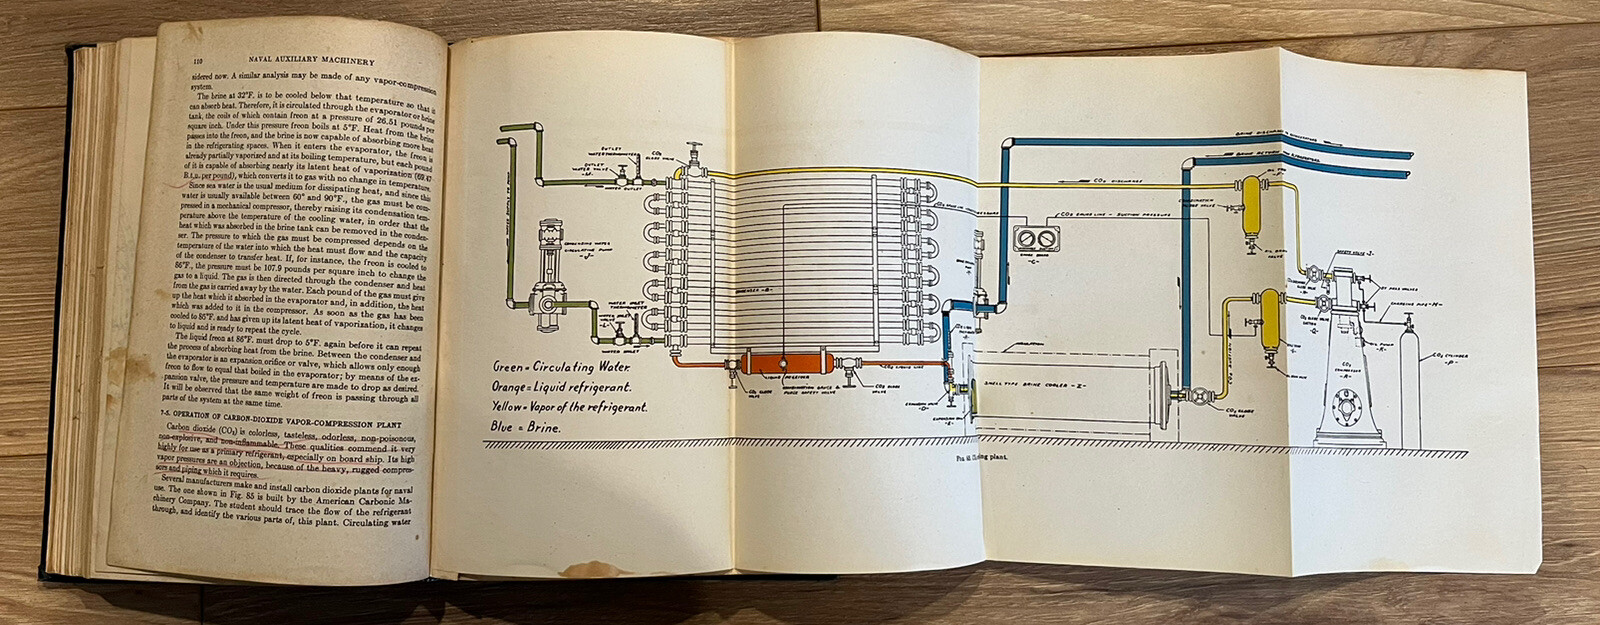 110 NAVAL AUXILIARY MACHINERY
sidered now. A similar analysis may be made of any vapor-compression
system.
The brine at 32°F. is to be cooled below that temperature so that it
can absorb heat. Therefore, it is circulated through the evaporator or brine
tank, the coils of which contain freon at a pressure of 26.51 pounds per
square inch. Under this pressure freon boils at 5°F. Heat from the brine
passes into the freon, and the brine is now capable of absorbing more heat
in the refrigerating spaces. When it enters the evaporator, the freon is
already partially vaporized and at its boiling temperature, but each pound
of it is capable of absorbing nearly its latent heat of vaporization (69.47
B.t.u. per pound), which converts it to gas with no change in temperature.
Since sea water is the usual medium for dissipating heat, and since this
water is usually available between 60° and 90°F., the gas must be com-
pressed in a mechanical compressor, thereby raising its condensation tem-
perature above the temperature of the cooling water, in order that the
heat which was absorbed in the brine tank can be removed in the conden-
ser. The pressure to which the gas must be compressed depends on the
temperature of the water into which the heat must flow and the capacity
of the condenser to transfer heat. If, for instance, the freon is cooled to
86°F., the pressure must be 107.9 pounds per square inch to change the
gas to a liquid. The gas is then directed through the condenser and heat
from the gas is carried away by the water. Each pound of the gas must give
up the heat which it absorbed in the evaporator and, in addition, the heat
which was added to it in the compressor. As soon as the gas has been
cooled to 86°F. and has given up its latent heat of vaporization, it changes
to liquid and is ready to repeat the cycle.
The liquid freon at 86°F. must drop to 5°F. again before it can repeat
the process of absorbing heat from the brine. Between the condenser and
the evaporator is an expansion orifice or valve, which allows only enough
freon to flow to equal that boiled in the evaporator; by means of the ex-
pansion valve, the pressure and temperature are made to drop as desired.
It will be observed that the same weight of freon is passing through all
parts of the system at the same time.
7-5. OPERATION OF CARBON-DIOXIDE VAPOR-COMPRESSION PLANT
Carbon dioxide (CO₂) is colorless, tasteless, odorless, non-poisonous,
non-explosive, and non-inflammable. These qualities commend it very
highly for use as a primary refrigerant, especially on board ship. Its high
vapor pressures are an objection, because of the heavy, rugged compres-
sors and piping which it requires.
Several manufacturers make and install carbon dioxide plants for naval
use. The one shown in Fig. 85 is built by the American Carbonic Ma-
chinery Company. The student should trace the flow of the refrigerant
through, and identify the various parts of, this plant. Circulating water
OUTLET
WATER THERMOMETER
OUTLET
WATER VALVE
WATER OUTLET
CO₂
GLOBE VALVE
CO₂ DISCHARGE
BRINE DISCHARGE
BRINE RETURN
CO₂ GAUGE LINE - SUCTION PRESSURE
GAUGE BOARD
CONDENSING WATER
CIRCULATING PUMP
CONDENSER -B-
WATER INLET
THERMOMETER
WATER INLET
LIQUID RECEIVER
CO₂ GLOBE
VALVE
COMBINATION GAUGE &
PURGE SAFETY VALVE
CO₂ LIQUID LINE
CO₂ GLOBE
VALVE
EXPANSION VALVE
-D-
INSULATION
SHELL TYPE BRINE COOLER -Z-
CO₂ GLOBE
VALVE
CO₂ SUCTION
OIL DRAIN
VALVE
SAFETY VALVE -J-
BY PASS VALVES
CHARGING PIPE -M-
OIL PUMP
-K-
CO₂
COMPRESSOR
-A-
CO₂ CYLINDER
-P-
Green = Circulating Water.
Orange = Liquid refrigerant.
Yellow = Vapor of the refrigerant.
Blue = Brine.
ing plant.